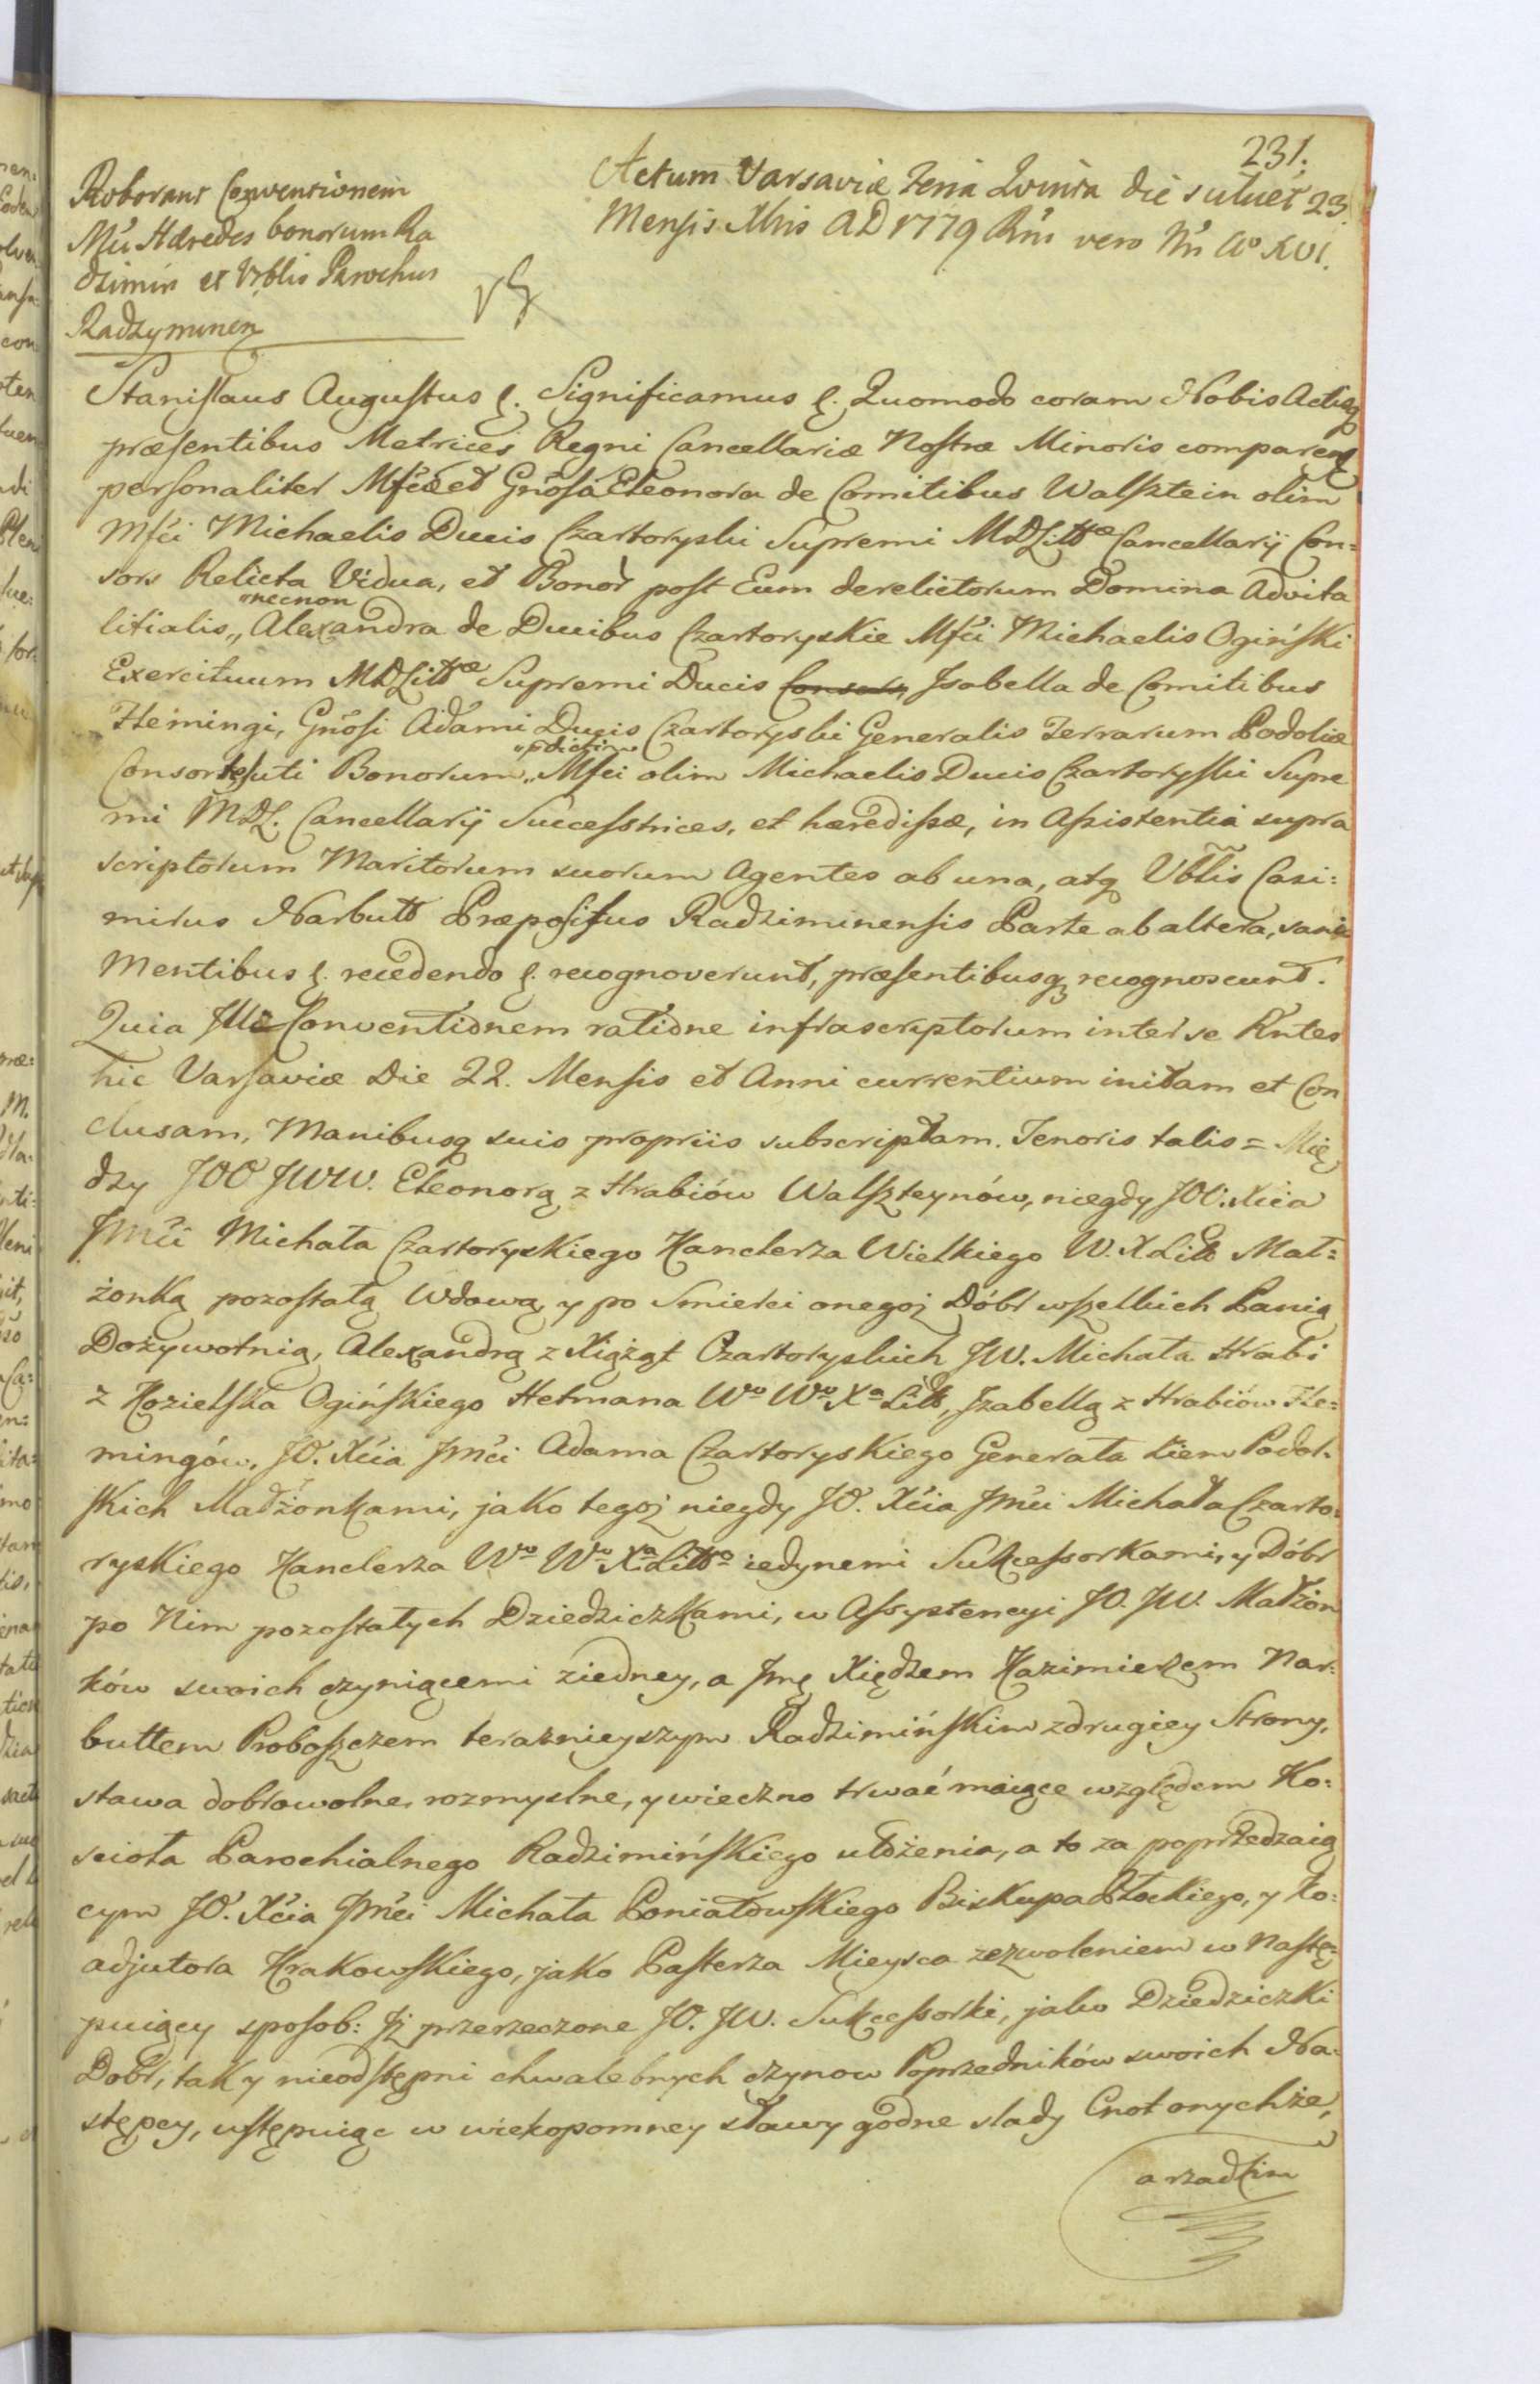 231.
Actum Varsaviæ Feria Quinta die scilicet 23.
Mensis Xbris AD 1779 Rni vero Nri Ao XVI.
Roborant Conventionem
Mci Hæredes bonorum Ra
dzimin et Vblis Parochus
Radzyminen
Stanislaus Augustus Significamus Quomodo coram Nobis Actisq
præsentibus Metrices Regni Cancellariæ Nostræ Minoris comparen
personaliter Mfcæ et Gnosa Eleonora de Comitibus Walsztein olim
Mfci Michaelis Ducis Czartoryski Supremi MDLittæ Cancellarij Con=
sors Relicta Vidua, et Bonor post Eum derelictorum Domina Advita
litialis „necnon„ Alexandra de Ducibus Czartoryskie Mfci Michaelis Ogiński
Exercituum MDLittæ Supremi Ducis Consors, Isabella de Comitibus
Flemingi, Gnosi Adami Ducis Czartoryski Generalis Terrarum Podoliæ
Consortes uti Bonorum „pdictim„ Mfci olim Michaelis Ducis Czartoryski Supre
mi MDL. Cancellarij Successtrices, et hæredissæ, in Assistentia supra
scriptorum Maritorum suorum Agentes ab una, atq Vblis Casi=
mirus Narbutt Præpositus Radziminensis Parte ab altera, sanis
Mentibus recedendo recognoverunt, præsentibusq recognoscunt.
Quia Illæ Conventionem ratione infrascriptorum inter se Rntes
hic Varsaviæ Die 22. Mensis et Anni currentium initam et Con
clusam, Manibusq suis propriis subscriptam. Tenoris talis = Mię
dzy JOO JWW. Eleonorą z Hrabiów Walszteynów, niegdy JO. Xcia
Jmci Michała Czartoryskiego Kanclerza Wielkiego W. X Litt Mał=
żonką pozostałą Wdową, y po Smierci onegoż Dóbr wszelkich Panią
Dożywotnią, Alexandrą z Xiążąt Czartoryskich JW. Michała Hrabi
z Kozielska Ogińskiego Hetmana Wo Wo Xa Litt, Izabellą z Hrabiów Fle=
mingów, JO. Xcia Jmci Adama Czartoryskiego Generała Ziem Podol=
skich Małżonkami, jako tegoż niegdy JO. Xcia Jmci Michała Czarto=
ryskiego Kanclerza Wo Wo Xa Litto iedynemi Sukcessorkami, y Dóbr
po Nim pozostałych Dziedziczkami, w Assystencyi JO. JW. Małżon
ków swoich czyniącemi ziedney, a Jmę Xiędzem Kazimierzem Nar=
buttem Proboszczem teraznieyszym Radzimińskim zdrugiey Strony,
stawa dobrowolne, rozmyslne, y wieczno trwać maiące względem Ko=
sciola Parochialnego Radzimińskiego ułożenia, a to za poprzedzaią
cym JO. Xcia Jmci Michała Poniatowskiego Biskupa Płockiego, y Ko=
adjutora Krakowskiego, jako Pasterza Mieysca zezwoleniem w Nastę=
puiący sposob: Iż przerzeczone JO. JW. Sukcessorki, jako Dziedziczki
Dobr, tak y nieodstępni chwalebnych czynow Poprzedników swoich Na=
stępcy, wstępuiąc w wiekopomney sławy godne slady Cnot onychże,
a rzadkim